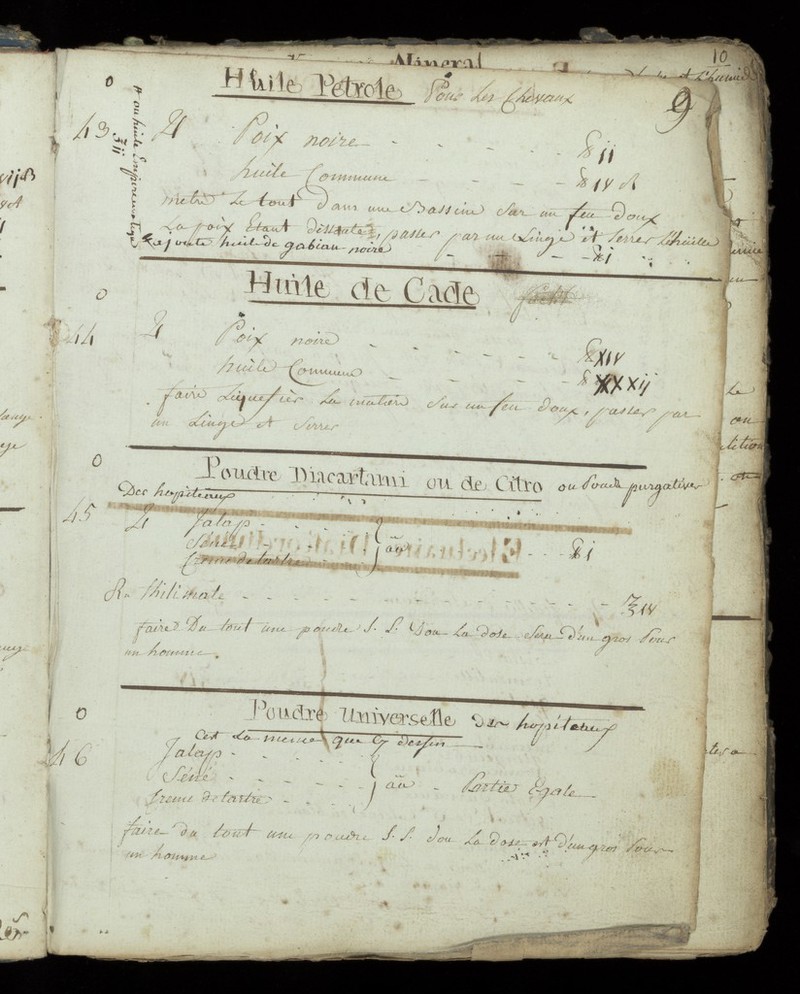 Mineral
10
Huile Petrole Pour Les Chevaux
9
43
♃ Poix noire ℔ ii
huile Commune ℔ iv
metré Le tout Dans une Bassine Sur un feu doux
La poix Etant passer par un Linge et Serrer L'huille
ajouté huile de gabian noire ℔ i
Huile de Cade
44
♃ Poix noire ℔ xiv
huile Commune
faire Liquefier La matiere Sur un feu doux, passer par
un Linge et Serrer
Poudre Diacartami ou de Citro ou Poudre purgative
Des hopiteaux
45
♃ Jalap
Séné
Creme de tartre } aña ℔ i
faire Du tout une poudre S. S. Dou La dose Sera d'un gros Pour
un homme.
Poudre Universelle Des hopiteaux
Cest La meme que Cy dessus
46
Jalap
Séné
Creme de tartre } aña Partie Egale
faire du tout une poudre S. S. dou La dose est d'un gros Pour
un homme